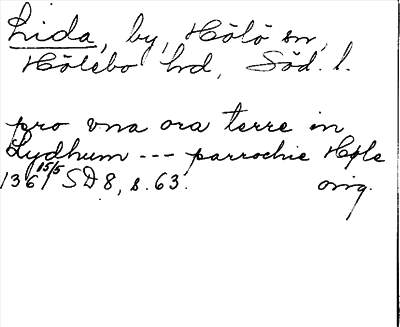 Lida, by, Hölö sn,
Hölebo hd, Söd. l.
pro vna ora terre in
Lydhum --- parrochie Høle
136 15/5 SD 8, s. 63. orig.